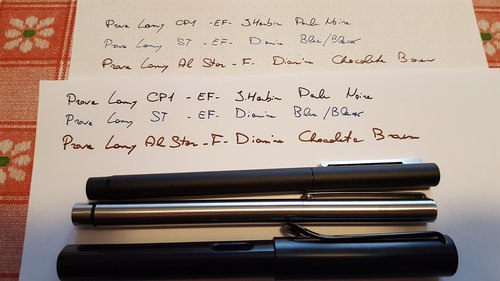 Prove Lamy CP1 - EF - J. Herbin Perle Noire
Prove Lamy ST - EF - Diamine Blue/Black
Prove Lamy Al Star - F - Diamine Chocolate Brown
Prove Lamy CP1 - EF - J. Herbin Perle Noire
Prove Lamy ST - EF Diamine Blue/Black
Prove Lamy Al Star - F - Diamine Chocolate Brown